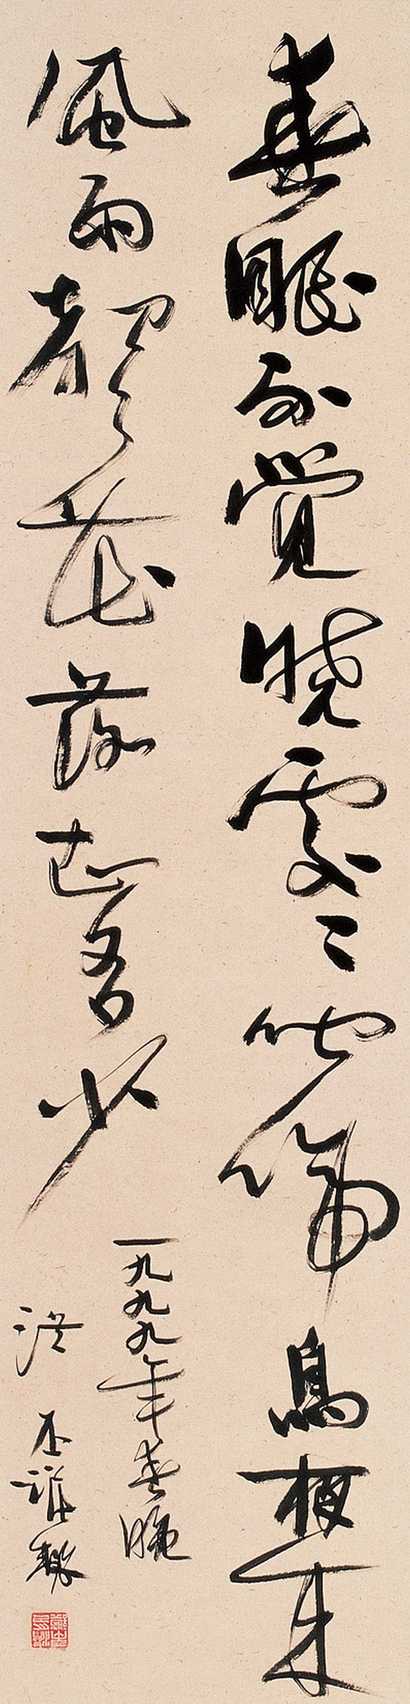 春眠不覺曉處〻聞啼鳥夜來
風雨聲花落知多少
一九九九年春曉
洪丕謨